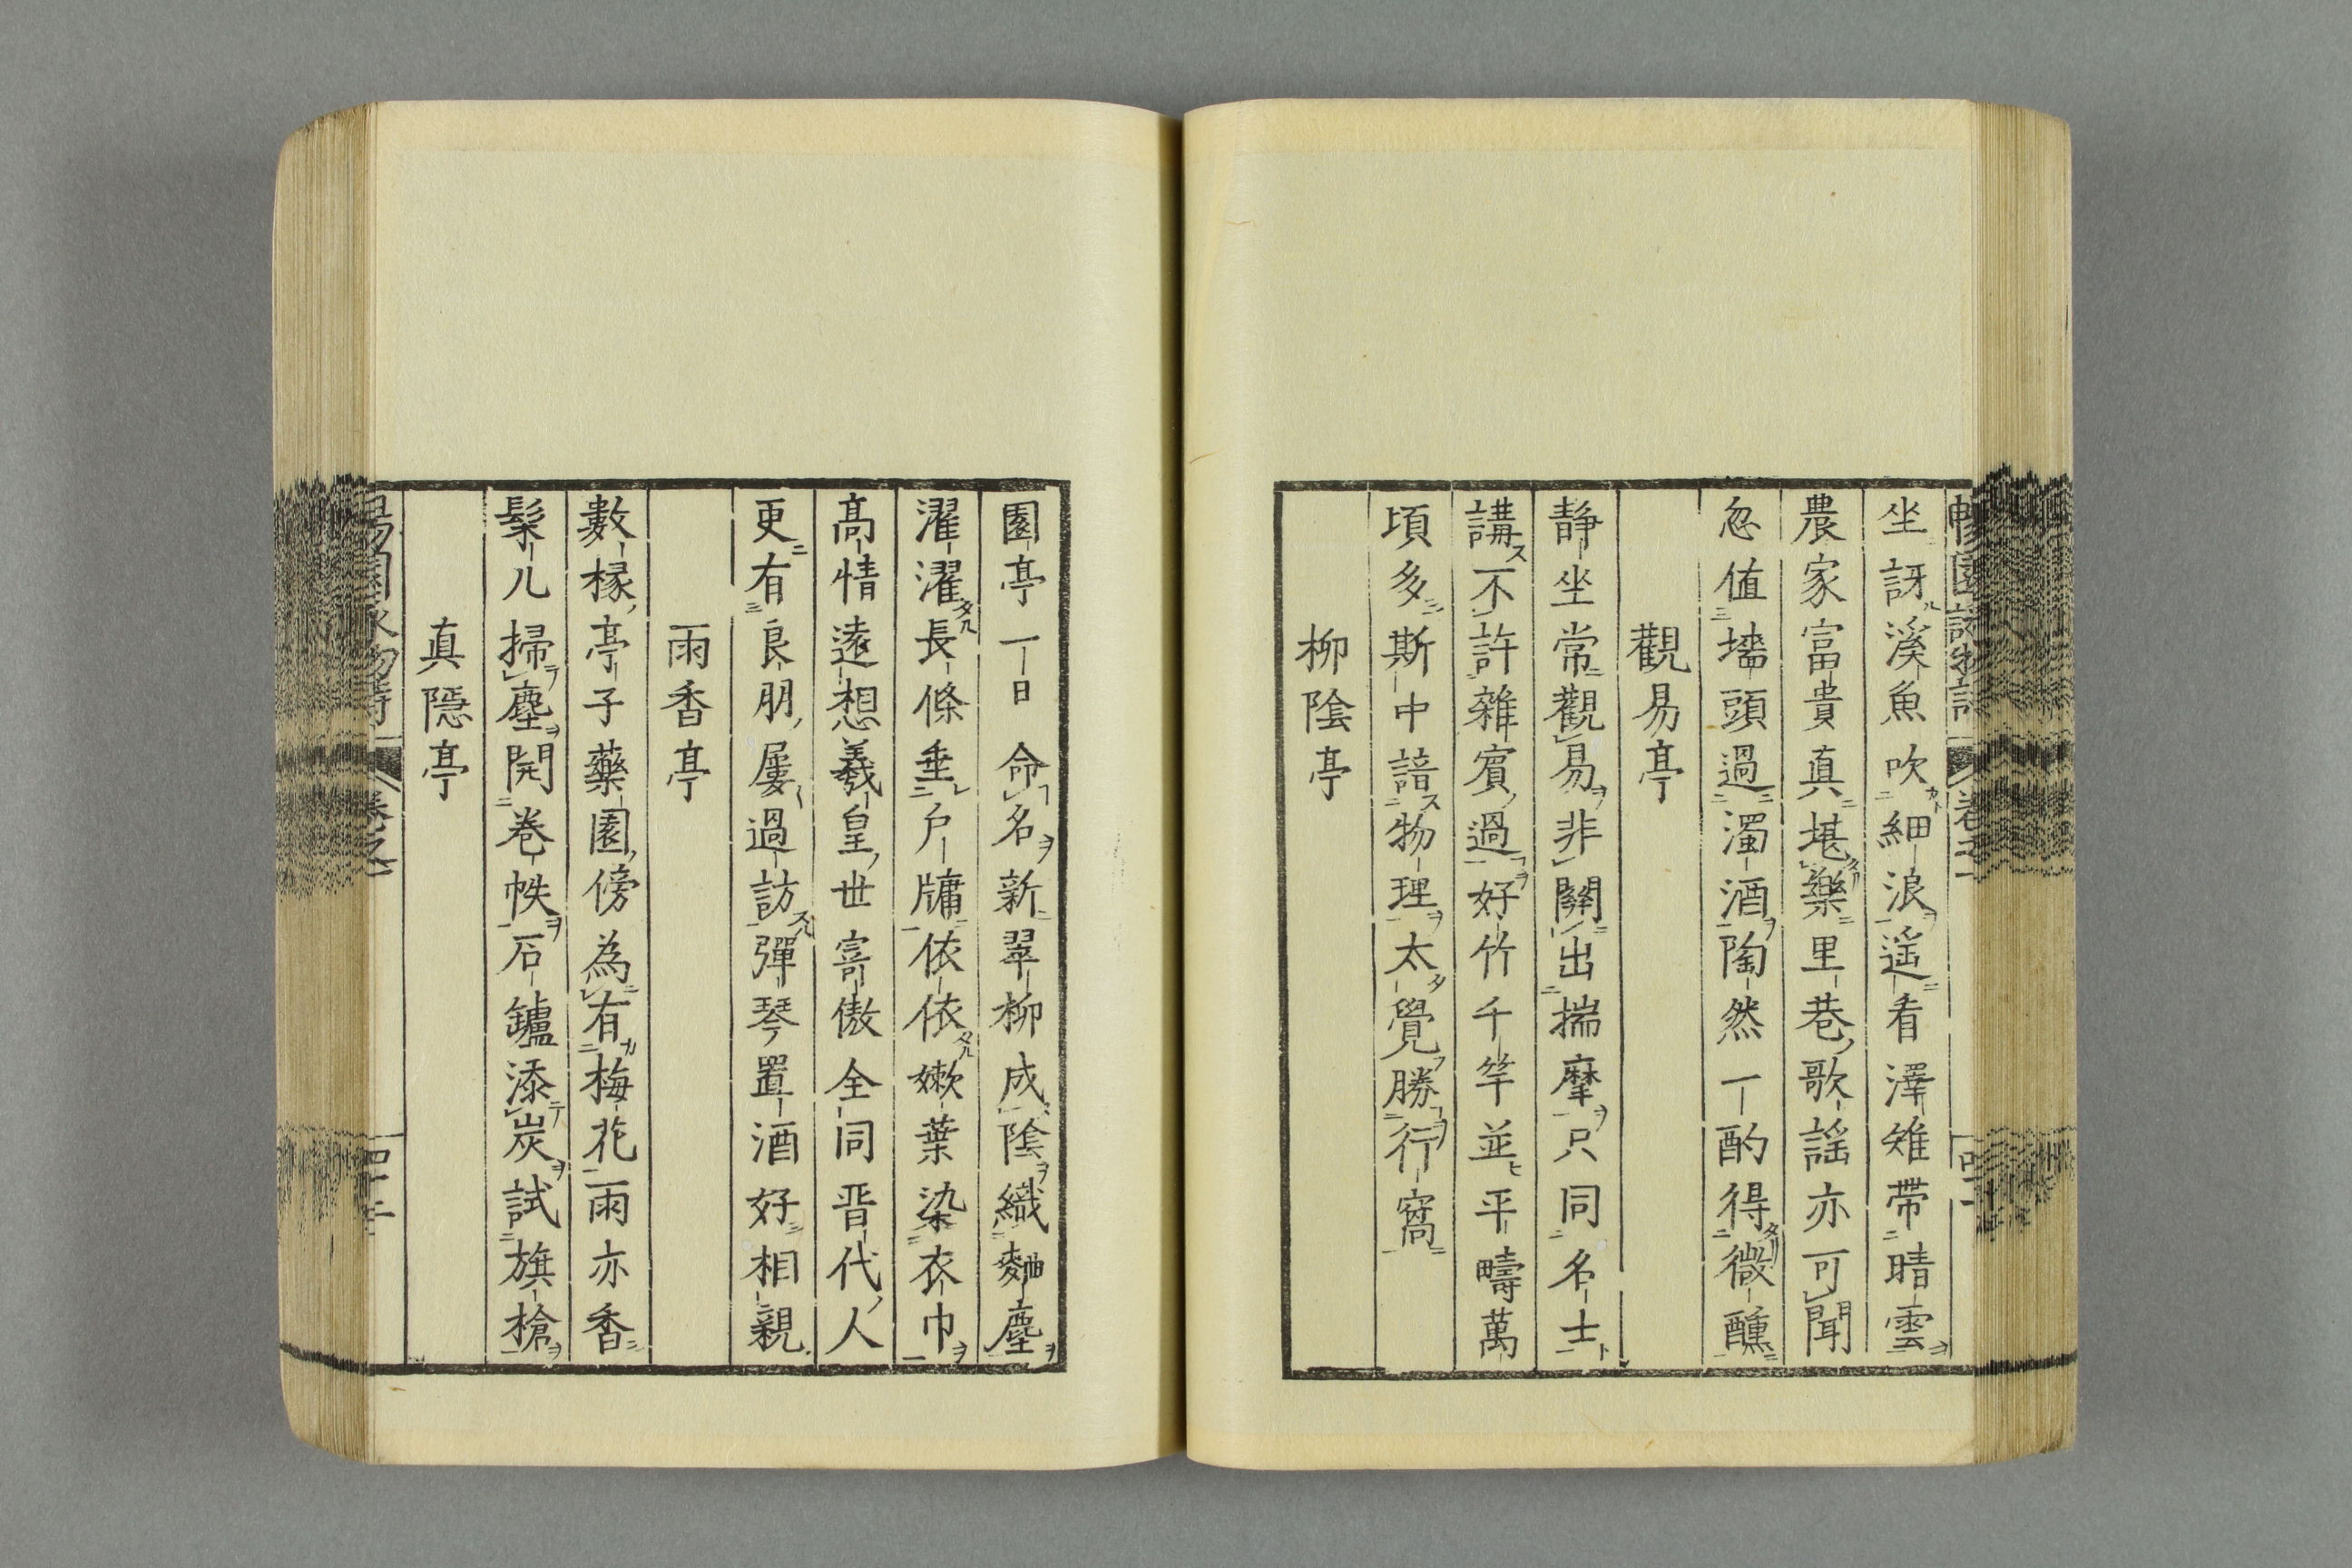 坐訝溪魚吹細浪遥看澤雉帶晴雲
農家富貴真堪樂里巷歌謡亦可聞
忽値墻頭過濁酒陶然一酌得微醺
觀易亭
静坐常觀易非關出揣摩只同名士
講不許雜賓過好竹千竿並平疇萬
頃多斯中諳物理太覺勝行窩
柳陰亭
園亭一日命名新翠柳成陰織麯塵
濯濯長條垂户牖依依嫩葉染衣巾
髙情遠想羲皇世寄傲全同晋代人
更有良朋屢過訪彈琴置酒好相親
雨香亭
數椽亭子藥園傍為有梅花雨亦香
髹几掃塵開巻帙石鑪添炭試旗槍
真隱亭